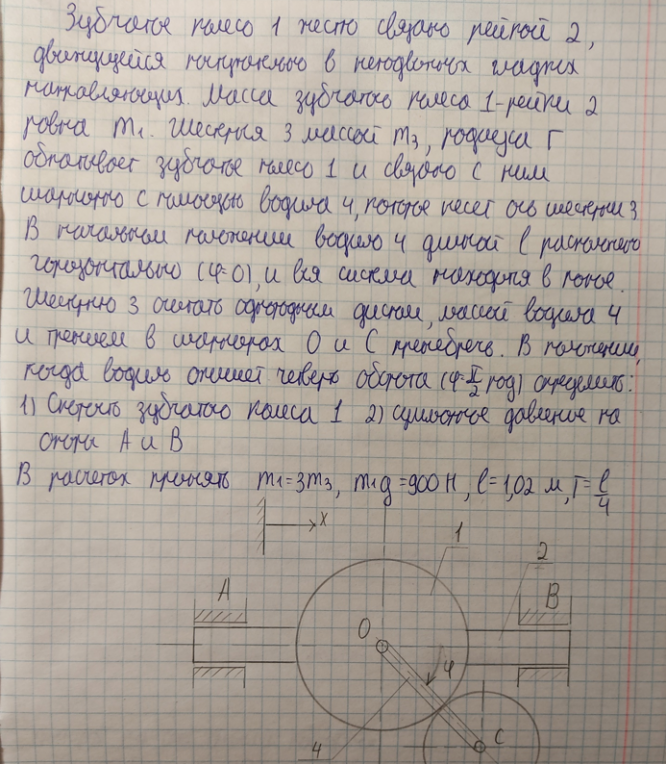 Зубчатое колесо 1 жестко связано рейкой 2,
движущейся поступательно в неподвижных гладких
направляющих. Масса зубчатого колеса 1-рейки 2
равна m₁. Шестерня 3 массой m₃, радиуса r
обкатывает зубчатое колесо 1 и связано с ним
шарнирно с помощью водила 4, которое несет ось шестерни 3
В начальном положении водило 4 длиной l расположено
горизонтально (φ=0), и вся система находится в покое.
Шестерню 3 считать однородным диском, массой водила 4
и трением в шарнирах O и C пренебречь. В положении,
когда водило опишет четверть оборота (φ=π/2 рад) определить:
1) Скорость зубчатого колеса 1 2) суммарное давление на
опоры A и B
В расчетах принять m₁=3m₃, m₁g=900 H, l=1,02 м, r=l/4
x
1
2
A
B
O
φ
4
C